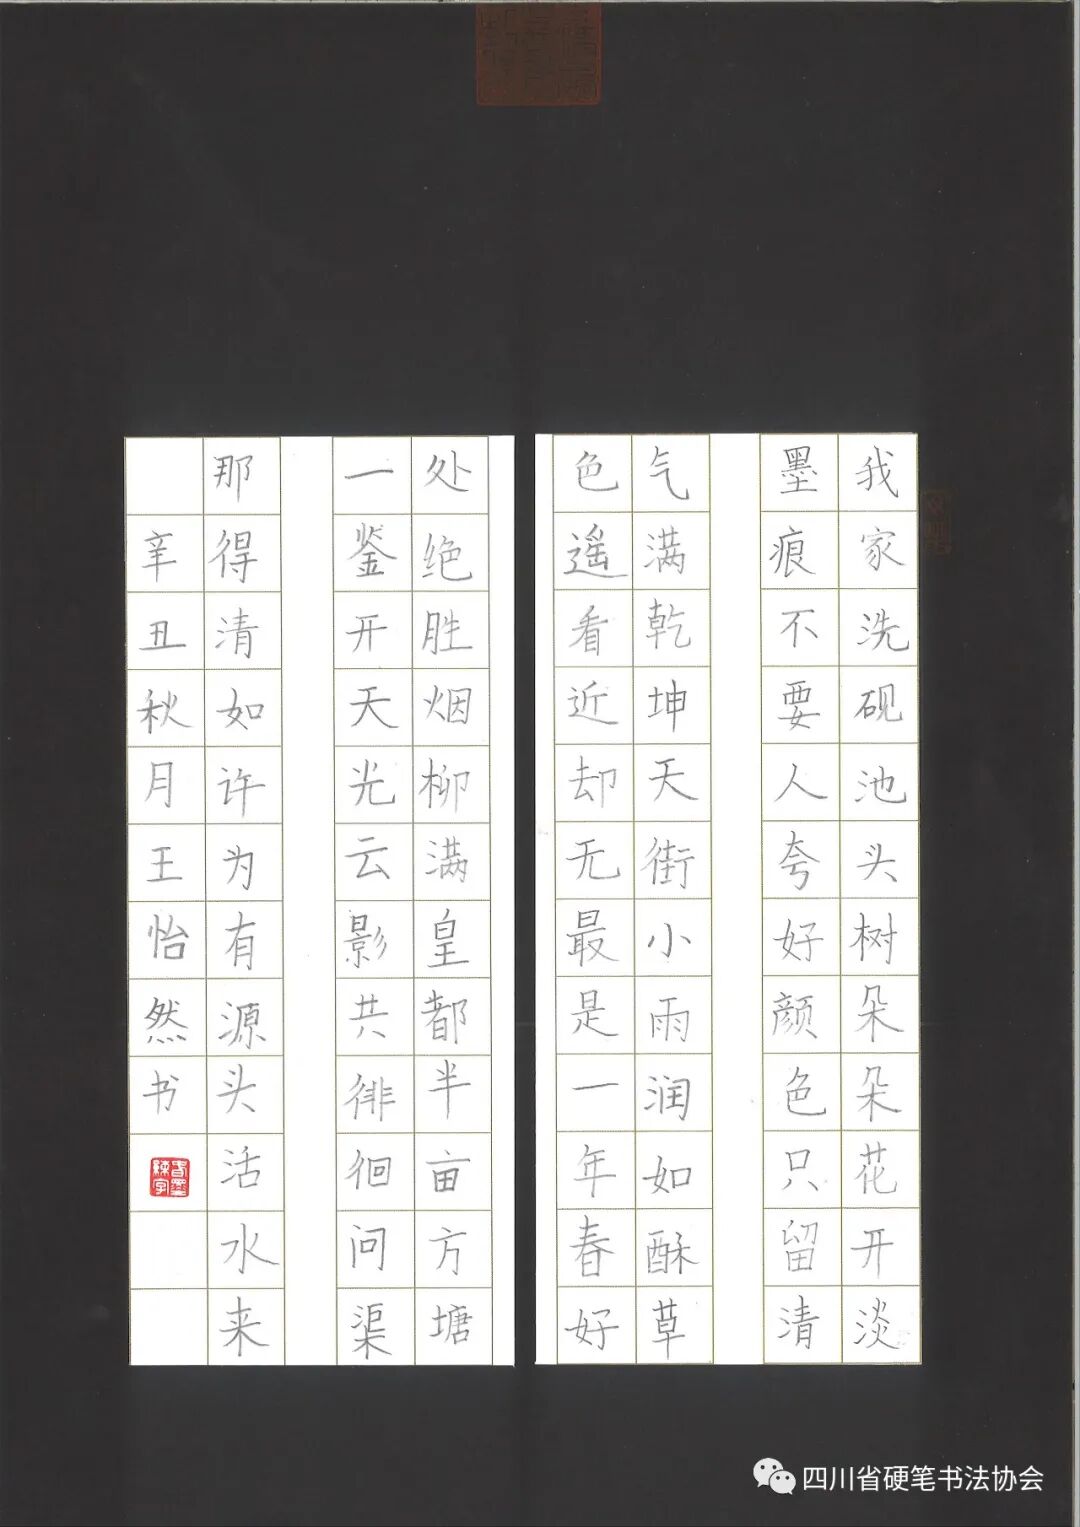 我家洗砚池头树朵朵花开淡
墨痕不要人夸好颜色只留清
气满乾坤天街小雨润如酥草
色遥看近却无最是一年春好
处绝胜烟柳满皇都半亩方塘
一鉴开天光云影共徘徊问渠
那得清如许为有源头活水来
辛丑秋月王怡然书
四川省硬笔书法协会